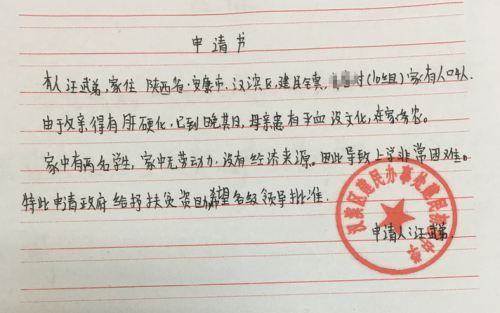 申请书
有人汪武弟,家住 陕西省,安康市,汉滨区,建民镇 村(10组)家有人口4人.
由于父亲得有肝硬化,已到晚其月,母亲患有平血没文化,在家务农。
家中有两名学生,家中无劳动力,没有经济来源。因此导致上学非常困难。
特此申请政府给予扶贫资助希望各级领导批准.
申请人:汪武弟.
汉滨区建民办事处建民